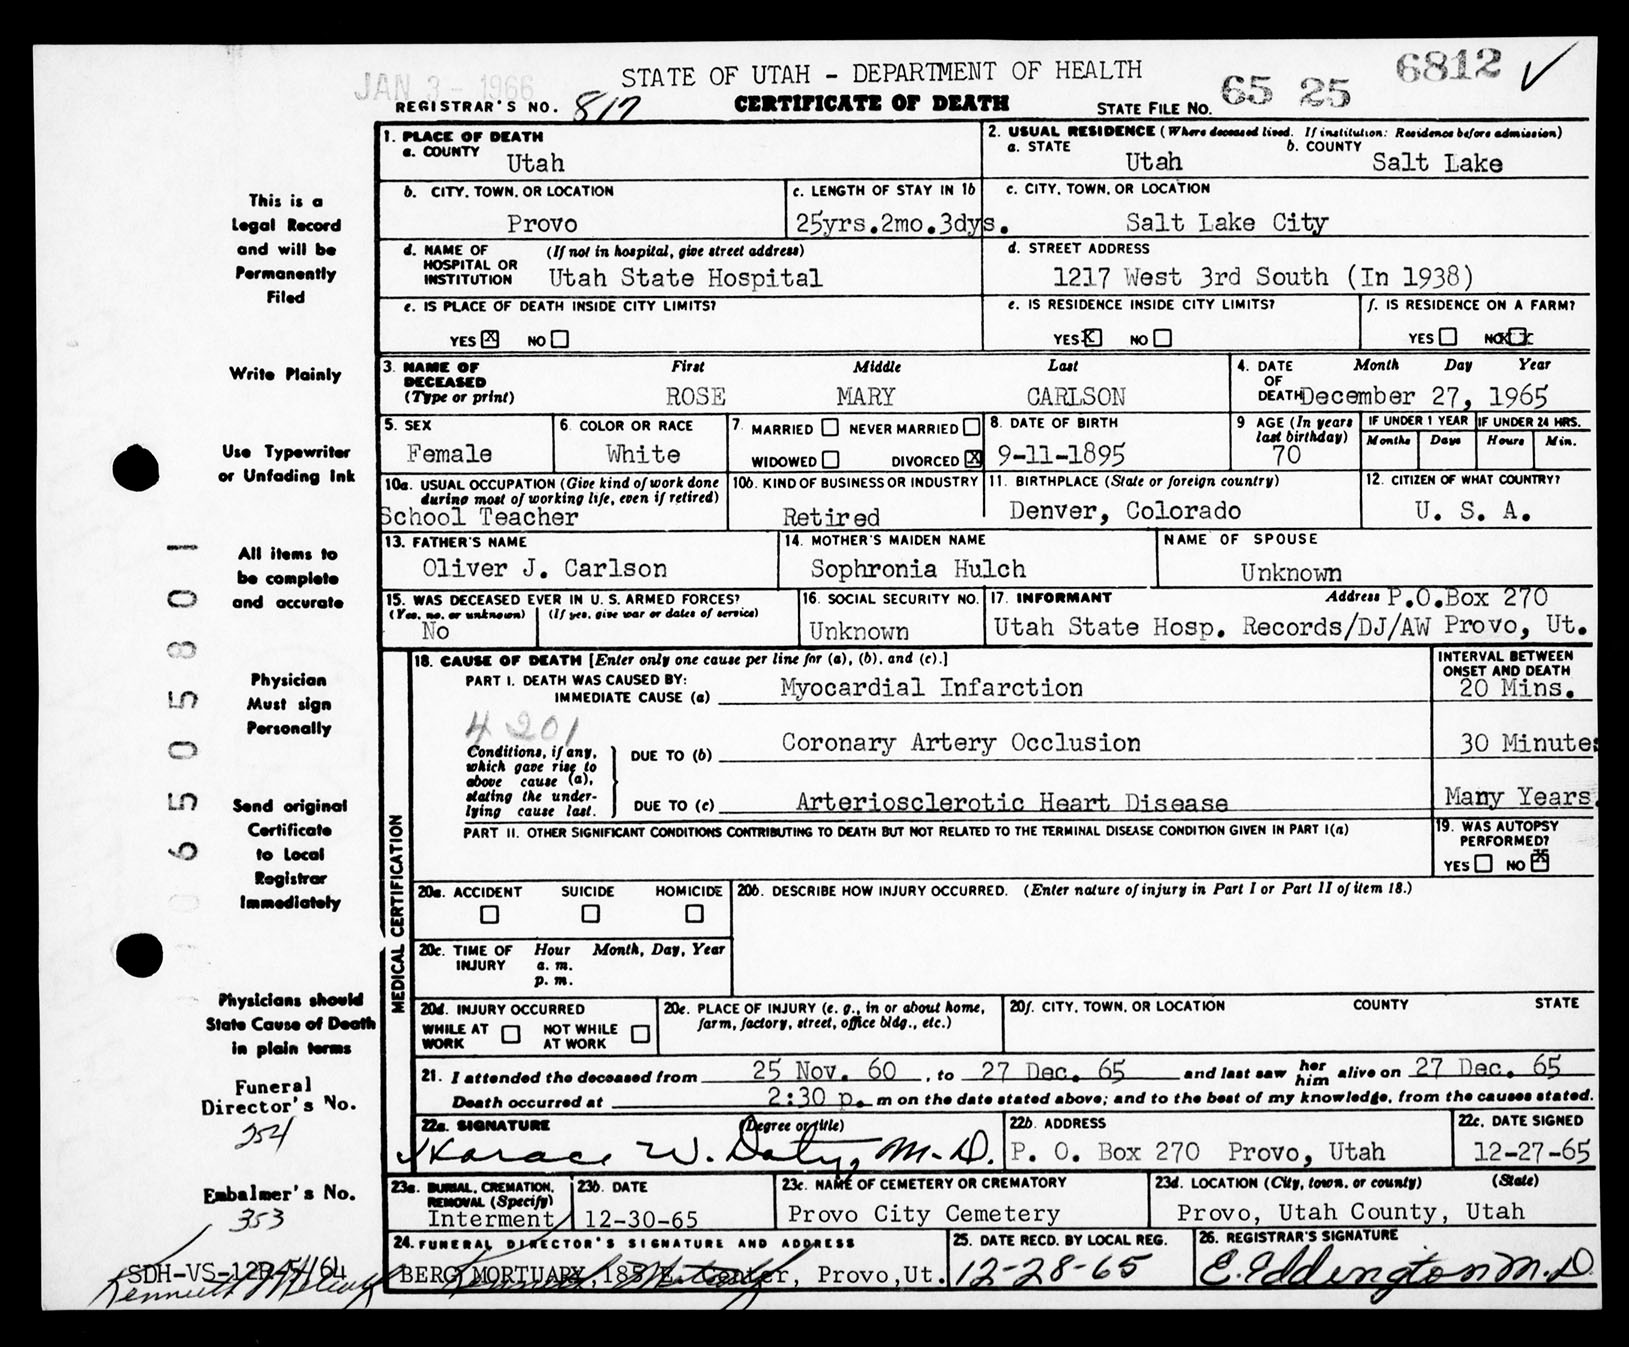 JAN 3 - 1966
STATE OF UTAH - DEPARTMENT OF HEALTH
6812 ✓
REGISTRAR'S NO. 817
CERTIFICATE OF DEATH
STATE FILE NO. 65 25
This is a
Legal Record
and will be
Permanently
Filed
Write Plainly
Use Typewriter
or Unfading Ink
All items to
be complete
and accurate
Physician
Must sign
Personally
Send original
Certificate
to Local
Registrar
Immediately
Physicians should
State Cause of Death
in plain terms
Funeral
Director's No.
254
Embalmer's No.
353
SDH-VS-12R
0650580 1
1. PLACE OF DEATH
a. COUNTY
Utah
2. USUAL RESIDENCE (Where deceased lived. If institution: Residence before admission)
a. STATE b. COUNTY
Utah Salt Lake
b. CITY, TOWN, OR LOCATION
Provo
c. LENGTH OF STAY IN 1b
25yrs.2mo.3dys.
c. CITY, TOWN, OR LOCATION
Salt Lake City
d. NAME OF (If not in hospital, give street address)
HOSPITAL OR
INSTITUTION Utah State Hospital
d. STREET ADDRESS
1217 West 3rd South (In 1938)
e. IS PLACE OF DEATH INSIDE CITY LIMITS?
YES X NO
e. IS RESIDENCE INSIDE CITY LIMITS?
YES X NO
f. IS RESIDENCE ON A FARM?
YES NO
3. NAME OF First Middle Last
DECEASED
(Type or print) ROSE MARY CARLSON
4. DATE Month Day Year
OF
DEATH December 27, 1965
5. SEX
Female
6. COLOR OR RACE
White
7. MARRIED NEVER MARRIED
WIDOWED DIVORCED X
8. DATE OF BIRTH
9-11-1895
9 AGE (In years
last birthday)
70
IF UNDER 1 YEAR IF UNDER 24 HRS.
Months Days Hours Min.
10a. USUAL OCCUPATION (Give kind of work done
during most of working life, even if retired)
School Teacher
10b. KIND OF BUSINESS OR INDUSTRY
Retired
11. BIRTHPLACE (State or foreign country)
Denver, Colorado
12. CITIZEN OF WHAT COUNTRY?
U. S. A.
13. FATHER'S NAME
Oliver J. Carlson
14. MOTHER'S MAIDEN NAME
Sophronia Hulch
NAME OF SPOUSE
Unknown
15. WAS DECEASED EVER IN U. S. ARMED FORCES?
(Yes, no, or unknown) (If yes, give war or dates of service)
No
16. SOCIAL SECURITY NO.
Unknown
17. INFORMANT Address P.O.Box 270
Utah State Hosp. Records/DJ/AW Provo, Ut.
MEDICAL CERTIFICATION
18. CAUSE OF DEATH [Enter only one cause per line for (a), (b), and (c).]
INTERVAL BETWEEN
ONSET AND DEATH
PART I. DEATH WAS CAUSED BY:
IMMEDIATE CAUSE (a) Myocardial Infarction 20 Mins.
4 201
Conditions, if any,
which gave rise to
above cause (a),
stating the under-
lying cause last.
DUE TO (b) Coronary Artery Occlusion 30 Minutes
DUE TO (c) Arteriosclerotic Heart Disease Many Years.
PART II. OTHER SIGNIFICANT CONDITIONS CONTRIBUTING TO DEATH BUT NOT RELATED TO THE TERMINAL DISEASE CONDITION GIVEN IN PART I(a)
19. WAS AUTOPSY
PERFORMED?
YES NO X
20a. ACCIDENT SUICIDE HOMICIDE
20b. DESCRIBE HOW INJURY OCCURRED. (Enter nature of injury in Part I or Part II of item 18.)
20c. TIME OF Hour Month, Day, Year
INJURY a. m.
p. m.
20d. INJURY OCCURRED
WHILE AT NOT WHILE
WORK AT WORK
20e. PLACE OF INJURY (e. g., in or about home,
farm, factory, street, office bldg., etc.)
20f. CITY, TOWN, OR LOCATION COUNTY STATE
21. I attended the deceased from 25 Nov. 60, to 27 Dec. 65 and last saw her him alive on 27 Dec. 65
Death occurred at 2:30 p. m on the date stated above; and to the best of my knowledge, from the causes stated.
22a. SIGNATURE (Degree or title)
Horace W. Doty, M.D.
22b. ADDRESS
P. O. Box 270 Provo, Utah
22c. DATE SIGNED
12-27-65
23a. BURIAL, CREMATION,
REMOVAL (Specify)
Interment
23b. DATE
12-30-65
23c. NAME OF CEMETERY OR CREMATORY
Provo City Cemetery
23d. LOCATION (City, town, or county) (State)
Provo, Utah County, Utah
24. FUNERAL DIRECTOR'S SIGNATURE AND ADDRESS
BERG MORTUARY, 185 E. Center, Provo, Ut.
25. DATE RECD. BY LOCAL REG.
12-28-65
26. REGISTRAR'S SIGNATURE
E. Eddington M.D.